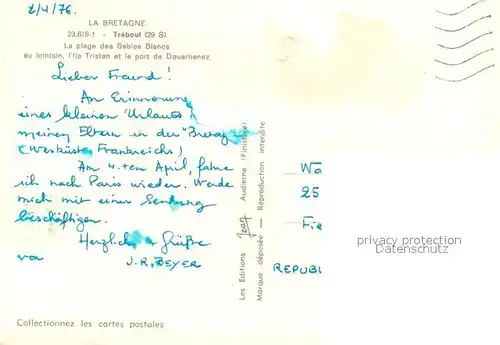 2/4/76.
LA BRETAGNE
23.618-1 - Tréboul (29 S)
La plage des Sables Blancs
au lointain, l'Ile Tristan et le port de Douarnenez
Lieber Freund !
An Erinnerung
eines kleinen Urlaubs
meinen Eltern in der Bretagne
(Westküste Frankreichs)
Am 4.ten April, fahre
ich nach Paris wieder. Werde
mich mit einer Sendung
beschäftigen.
Herzliche Grüße
von J.R. BEYER
Les Editions Jean Audierne (Finistère)
Marque déposée - Reproduction interdite
Wa
25
Fie
REPUBL
privacy protection
Datenschutz
Collectionnez les cartes postales